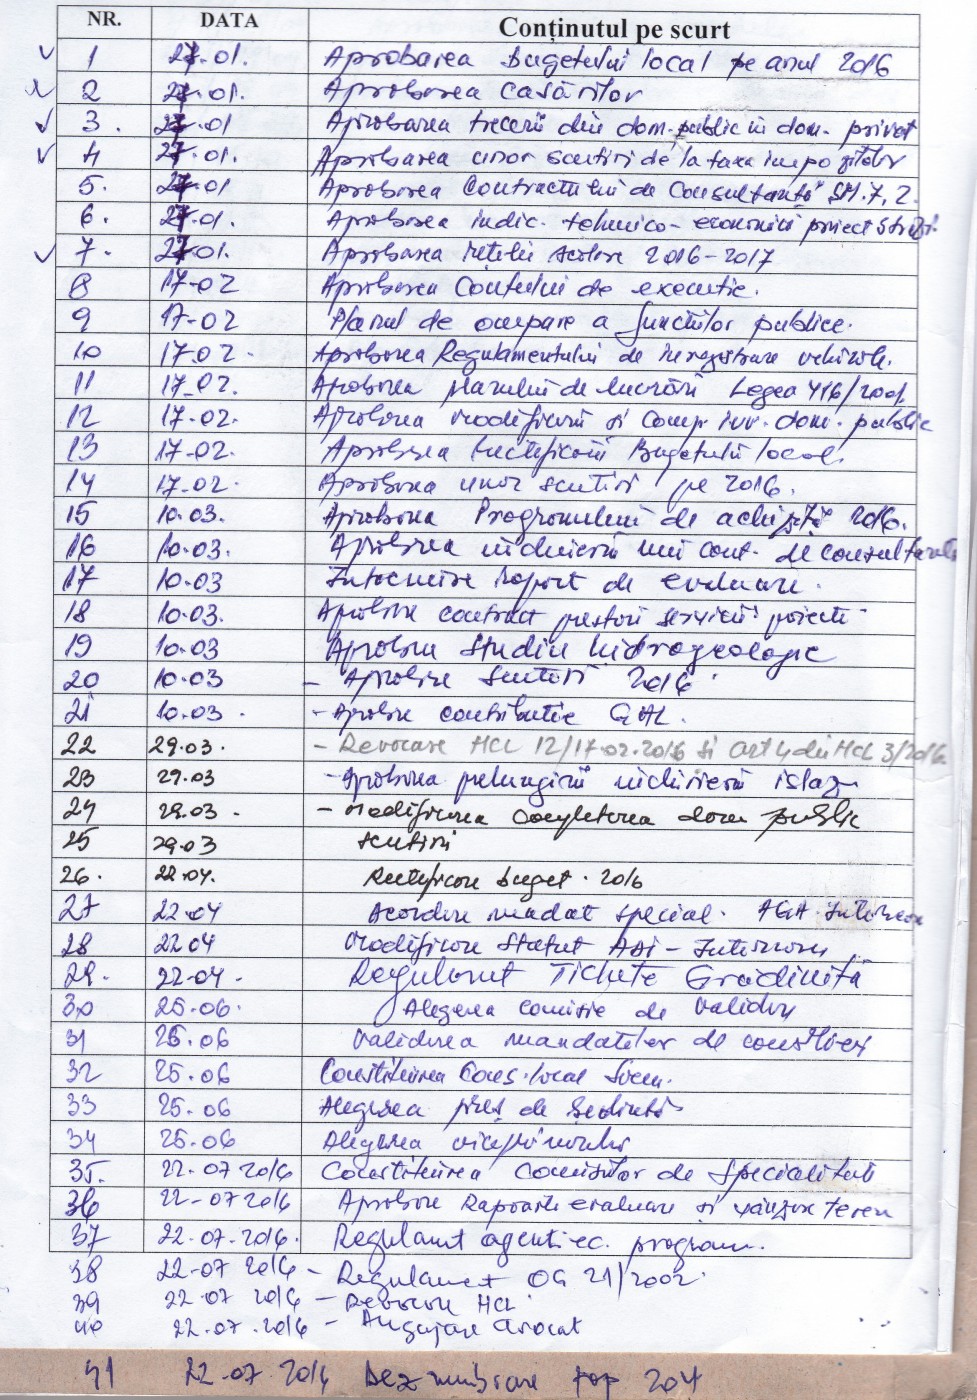 NR. DATA Conținutul pe scurt
1 27.01. Aprobarea bugetului local pe anul 2016
2 27.01. Aprobarea casărilor
3. 27.01 Aprobarea trecerii din dom. public în dom. privat
4 27.01. Aprobarea unor scutiri de la taxa impozitelor
5. 27.01 Aprobarea Contractului de Consultanță
6. 27.01. Aprobarea indic. tehnico-economici proiect străzi.
7. 27.01. Aprobarea rețelei școlare 2016-2017
8 17-02 Aprobarea Contului de execuție.
9 17-02 Planul de ocupare a funcțiilor publice.
10 17.02. Aprobarea Regulamentului de înregistrare vehicole.
11 17.02. Aprobarea planului de lucrări Legea 416/2001
12 17.02. Aprobarea modificării și comp. inv. dom. public
13 17-02. Aprobarea rectificării Bugetului local.
14 17-02. Aprobarea unor scutiri pe 2016.
15 10.03. Aprobarea Programului de achiziții 2016.
16 10.03. Aprobarea încheierii unui cont. de consultanță
17 10.03 Întocmire raport de evaluare.
18 10.03 Aprobare contract prestări servicii proiecte
19 10.03 Aprobare Studiu hidrogeologic
20 10.03 - Aprobare Scutiri 2016
21 10.03. - Aprobare contribuție GAL.
22 29.03. - Revocare HCL 12/17.02.2016 și art 4 din HCL 3/2016.
23 29.03 - Aprobarea prelungirii închirierii islaz
24 29.03. - Modificarea Completarea dom public
25 29.03 Scutiri
26. 22.04. Rectificare buget. 2016
27 22.04 Acordare mandat special. AGA
28 22.04 Modificare Statut ADI -
29. 22-04. Regulament Tichete Grădiniță
30 25.06. Alegerea comisie de validare
31 25.06 Validarea mandatelor de consilieri
32 25.06 Constituirea Cons. local
33 25.06 Alegerea preș de ședință
34 25.06 Alegerea viceprimarului
35. 22.07 2016 Constituirea Comisiilor de Specialitate
36 22-07 2016 Aprobare Rapoarte evaluare și vânzare teren
37 22.07.2016. Regulament agenți ec. program.
38 22-07 2016 - Regulament OG 21/2002.
39 22.07 2016 - Revocare HCL
40 22.07.2016 - Angajare avocat
41 22.07.2016 Dezmembrare top 204